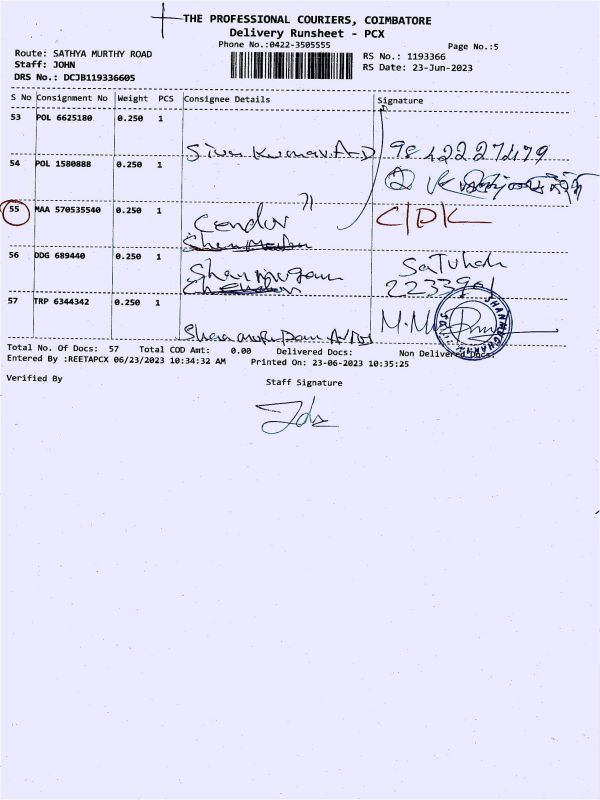 THE PROFESSIONAL COURIERS, COIMBATORE
Delivery Runsheet - PCX
Phone No.:0422-3505555
Page No.:5
Route: SATHYA MURTHY ROAD
Staff: JOHN
DRS No.: DCJB119336605
RS No.: 1193366
RS Date: 23-Jun-2023
S No Consignment No Weight PCS Consignee Details Signature
53 POL 6625180 0.250 1
Siva Kumar. A. D 9842227479
54 POL 1580888 0.250 1
55 MAA 570535540 0.250 1
Cendor C/DK
56 DDG 689440 0.250 1
Shanmugam
2233901
57 TRP 6344342 0.250 1
SHANMUGHA
Total No. Of Docs: 57 Total COD Amt: 0.00 Delivered Docs: Non Delivered Docs:
Entered By :REETAPCX 06/23/2023 10:34:32 AM Printed On: 23-06-2023 10:35:25
Verified By
Staff Signature